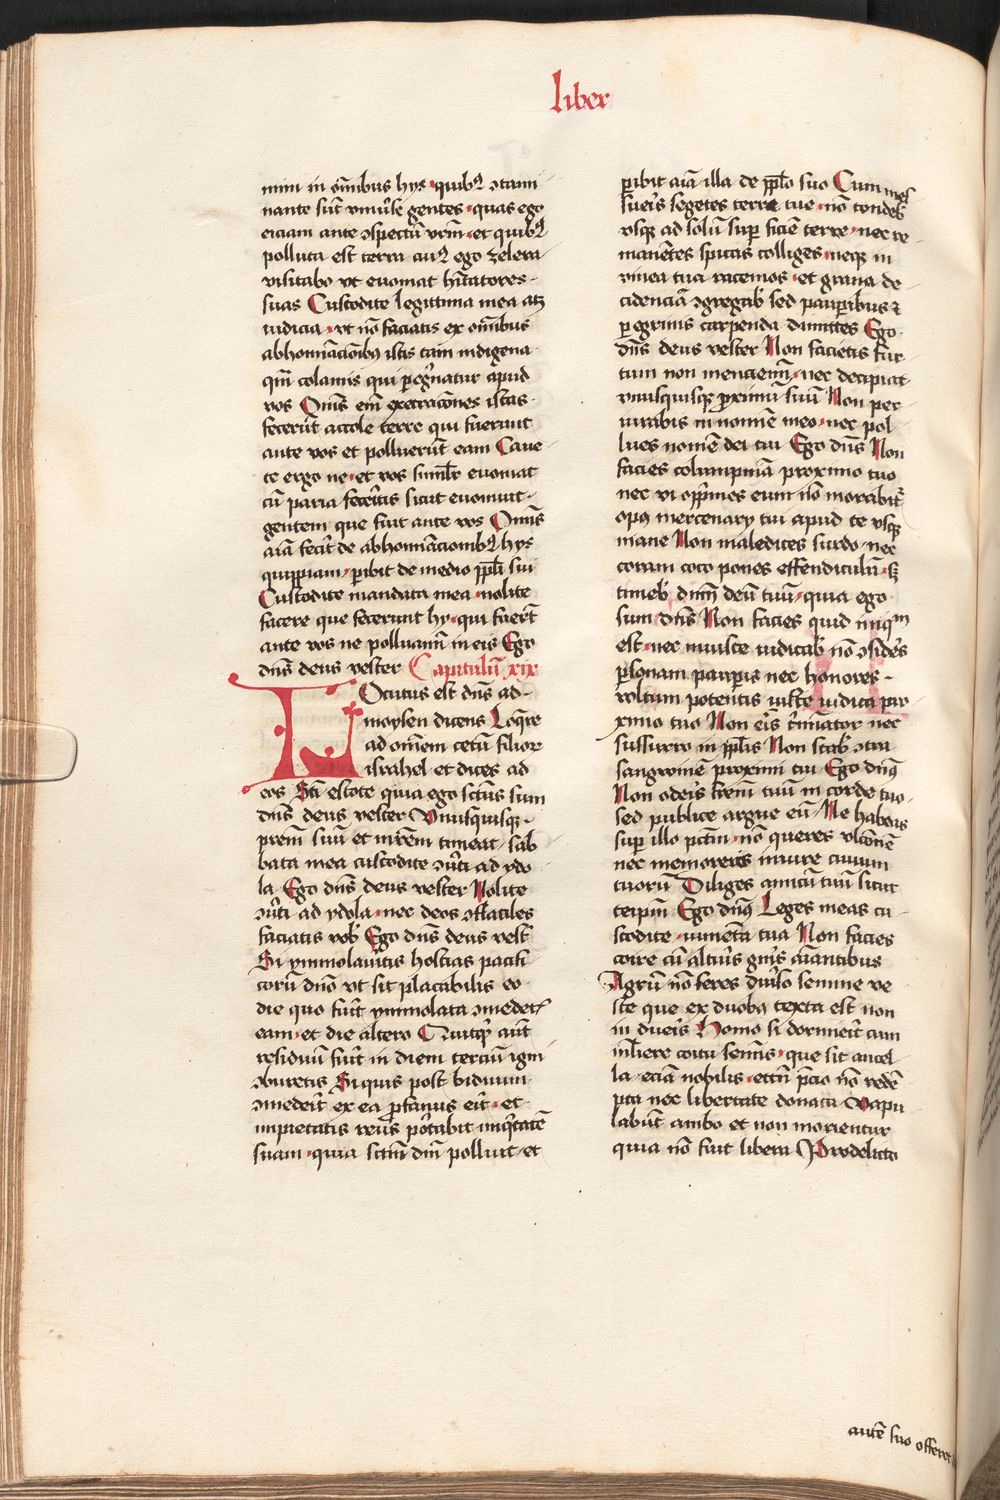 liber
mini in om̄ibus hys quibꝰ ↄtami
nante sūt vniu̓se gentes quas ego
eiciam ante ↄspectū vr̄m et quibꝰ
polluta est terra cuiꝰ ego zelera
visitabo vt euomat hītatores
suas Custodite legittima mea atꝫ
iudicia vt nō faciatis ex om̄ibus
abhomīacionibꝰ istis tam indigena
qm̄ colonus qui pegrinatur apud
vos Om̄s em̄ execracōnes istas
fecerūt accole terre qui fuerunt
ante vos et polluerūt eam Caue
te ergo ne et vos simil̓r euomat
cū paria fecerītis sicut euomuit
gentem que fuit ante vos Omīs
aīa fecit de abhomīacionibꝰ hys
quippiam ꝑibit de medio ppl̄i sui
Custodite mandata mea nolite
facere que fecerunt hy qui fuerūt
ante vos ne polluamī in eis Ego
dn̄s deus vester Capitulū xix
LOcutus est dn̄s ad
moysen dicens Loq̄re
ad om̄em cetū filior
israhel et dices ad
eos Sc̄i estote quia ego sctūs sum
dn̄s deus vester Vnusquisqꝫ
prēm suū et mr̄em timeat sab
bata mea custodite ↄu̓ti ad ydo
la Ego dn̄s deus vester Nolite
ↄu̓ti ad ydola nec deos ↄflatiles
faciatis vob̓ Ego dn̄s deus vest̓
Si ymmolau̓itis hostias pacifi
corū dn̄o vt sit placabilis eo
die quo fu̓it ymmolata ↄmedet̓
eam et die altero Quitq̓ aūt
residuū fu̓it in diem terciū igni
ↄburetis Si quis post biduum
ↄmederīt ex ea ꝓfanus eīt et
impietatis reūs portabit iniq̓tatē
suam quia sctm̄ dm̄ polluit et
ꝑibit aīa illa de ppl̄o suo Cum mes
sueīs segetes terre tue nō tondeb̓
vsqꝫ ad solū suꝑ ficiē terre nec re
manētes spicas colliges neqꝫ in
vinea tua racemos et grana de
cidenciā ↄgregab̓ sed pauꝑibus ⁊
ꝑegrinis carpenda dimittes Ego
dn̄s deus vester Non facietis fur
tum non mencienī nec decipiat
vnusquisqꝫ ꝓximū suū Non per
iurabis in nomīe meo nec pol
lues nomē dei tui Ego dn̄s Non
facies calumpniā proximo tuo
nec vi opp̓mes eum nō morabit̓
opꝰ mercenary tui apud te vsqꝫ
mane Non maledices surdo nec
coram ceco pones offendiculū sꝫ
timeb̓ dnm̄ deū tuū quia ego
sum dn̄s Non facies quid iniqm
est nec iniuste iudicab̓ nō ↄsid̓es
ꝑsonam pauꝑis nec honores
voltum potentis iuste iudica pro
ximo tuo Non eīs c̓minator nec
sussurro in ppl̄is Non stab̓ ↄtra
sangwinē proximi tui Ego dn̄s
Non odeis frēm tuū in corde tuo
sed publice argue eū Ne habeas
suꝑ illo pctm̄ nō queres vlcōnē
nec memoreris iniure ciuium
tuorū Diliges amicū tuū sicut
teipm̄ Ego dn̄s Leges meas cu
stodite iumēta tua Non facies
coire cū alti̓us gn̓is aīantibus
Agrū nō seres diu̓so semine ve
ste que ex duobꝰ texta est non
in dueīs Homo si dormieīt cum
mul̓iere coitu semīs que sit ancil
la eciā nobilis ettn̄ p̄cio nō redē
pta nec libertate donata Vapu
labūt ambo et non morientur
quia nō fuit libera Pro delicto
autē suo offeret